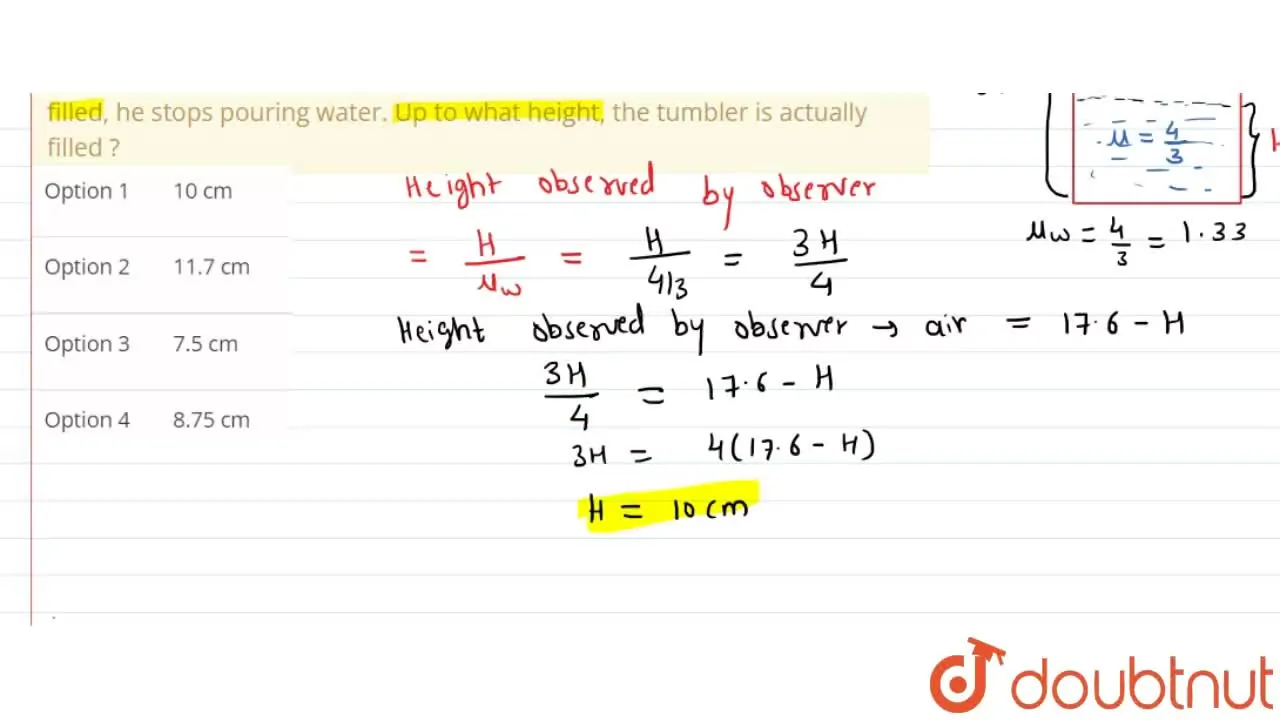 filled, he stops pouring water. Up to what height, the tumbler is actually
filled ?
μ = 4/3
H
μw = 4/3 = 1.33
Option 1 10 cm
Option 2 11.7 cm
Option 3 7.5 cm
Option 4 8.75 cm
Height observed by observer
= H/μw = H/4/3 = 3H/4
Height observed by observer → air = 17.6 - H
3H/4 = 17.6 - H
3H = 4(17.6 - H)
H = 10 cm
doubtnut